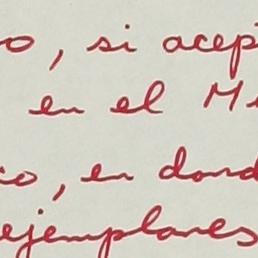 o, si acep
en el M
co, en dond
ejemplares